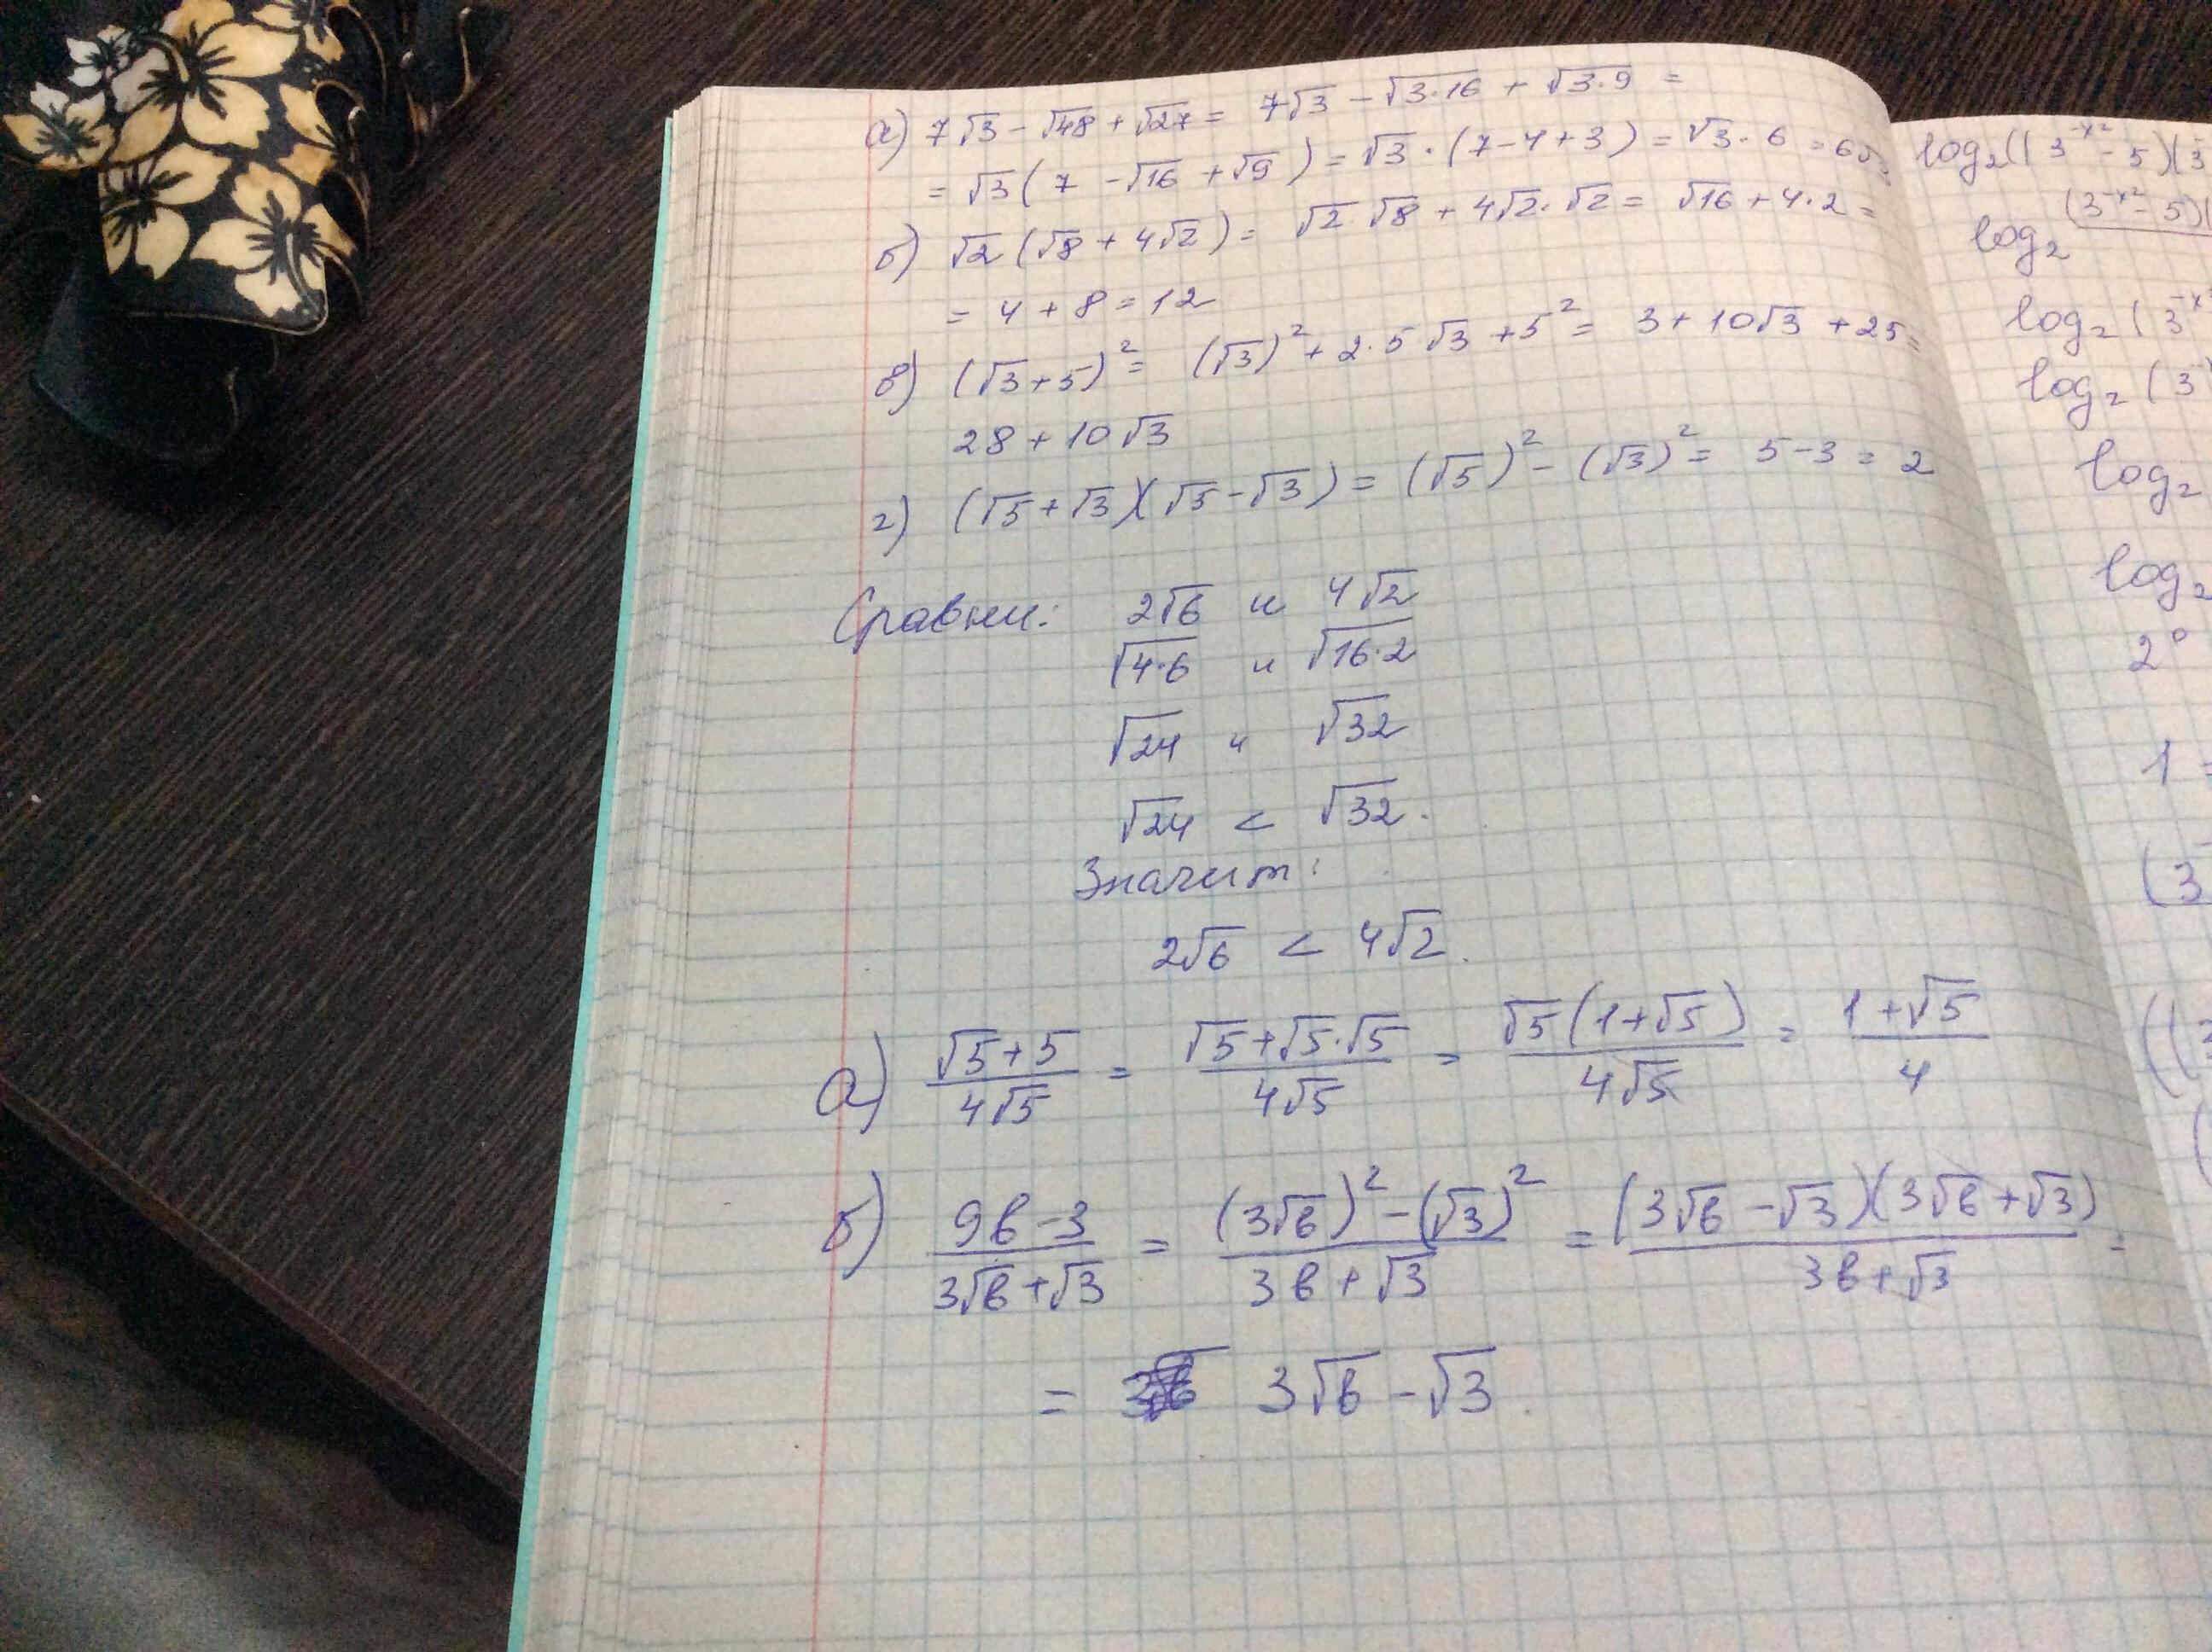 а) 7√3 - √48 + √27 = 7√3 - √3·16 + √3·9 =
= √3 (7 - √16 + √9) = √3 · (7 - 4 + 3) = √3 · 6 = 6√
б) √2 (√8 + 4√2) = √2 √8 + 4√2 · √2 = √16 + 4·2 =
= 4 + 8 = 12
в) (√3 + 5)² = (√3)² + 2·5√3 + 5² = 3 + 10√3 + 25 =
28 + 10√3
г) (√5 + √3)(√5 - √3) = (√5)² - (√3)² = 5 - 3 = 2
Сравни: 2√6 и 4√2
√4·6 и √16·2
√24 и √32
√24 < √32.
Значит:
2√6 < 4√2.
а) (√5 + 5)/(4√5) = (√5 + √5·√5)/(4√5) = (√5(1 + √5))/(4√5) = (1 + √5)/4
б) (9в - 3)/(3√в + √3) = ((3√в)² - (√3)²)/(3в + √3) = ((3√в - √3)(3√в + √3))/(3в + √3) =
= 3√в - √3.
log₂((3^-x² - 5)(3
log₂ (3^-x² - 5)(
log₂ (3^-x
log₂ (3^-
log₂
log₂
2⁰
1 =
(3
((3
(